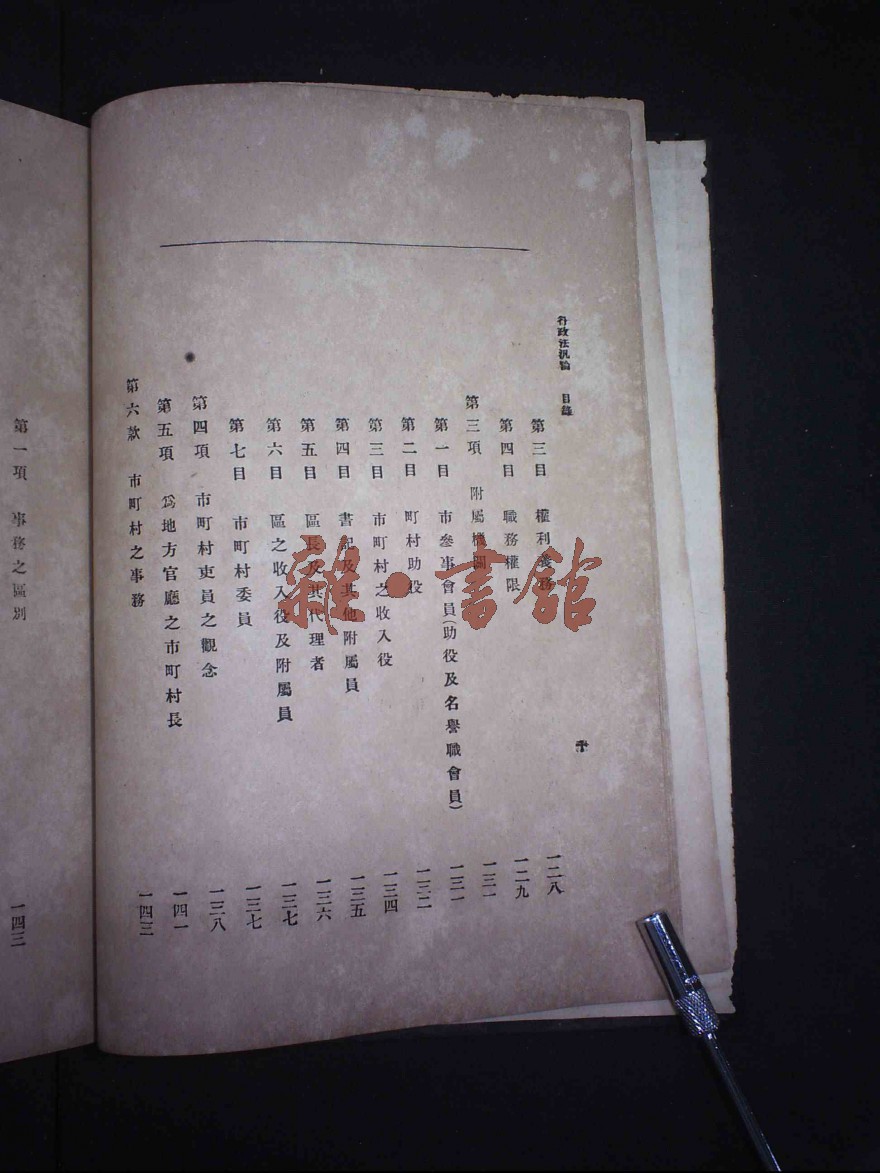 行政法汎論　目錄
十
第三目　權利義務　一二八
第四目　職務權限　一二九
第三項　附屬機關　一三一
第一目　市參事會員（助役及名譽職會員）　一三一
第二目　町村助役　一三二
第三目　市町村之收入役　一三四
第四目　書記及其他附屬員　一三五
第五目　區長及其代理者　一三六
第六目　區之收入役及附屬員　一三七
第七目　市町村委員　一三七
第四項　市町村吏員之觀念　一三八
第五項　爲地方官廳之市町村長　一四一
第六款　市町村之事務　一四三
第一項　事務之區別　一四三
雜·書館